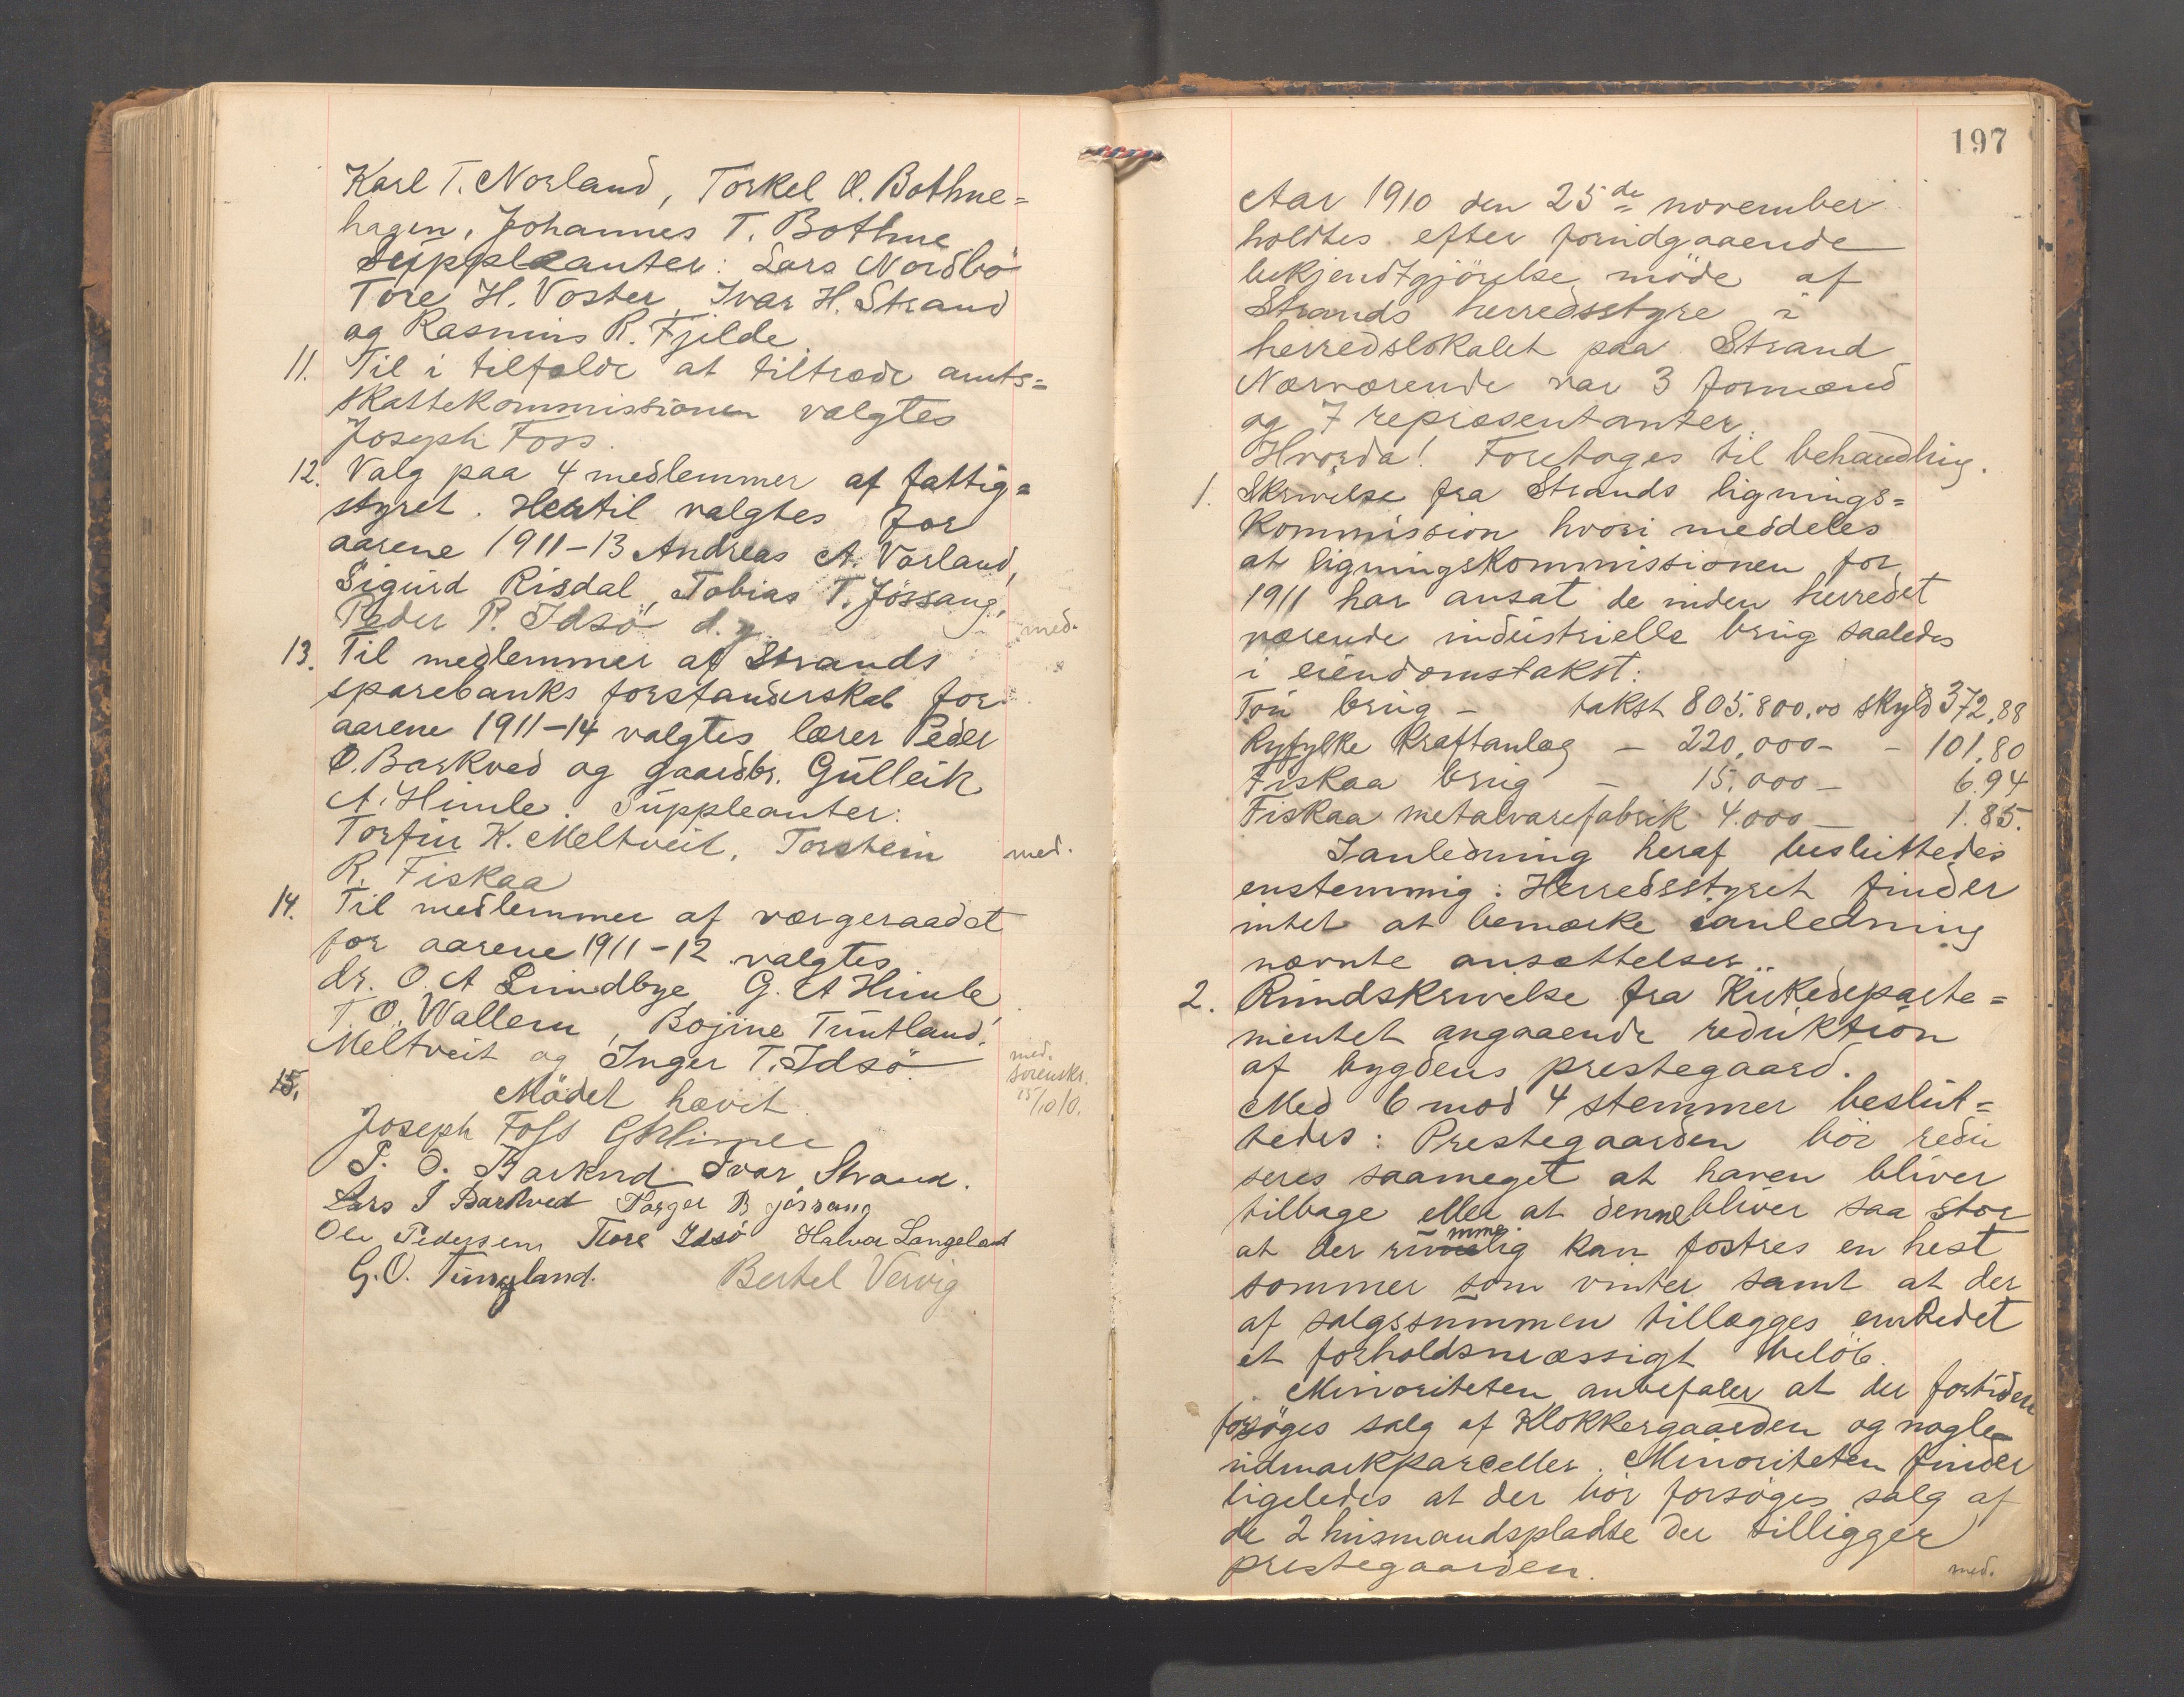 Karl T. Norland, Torkel O. Bothne=
hagen, Johannes T. Bothne
Suppleanter: Lars Nordbö
Tore H. Voster, Ivar H. Strand
og Rasmus R. Fjelde.
11. Til i tilfælde at tiltræde amts=
skattekommissionen valgtes
Joseph Foss.
12. Valg paa 4 medlemmer af fattig=
styret. Hertil valgtes for
aarene 1911-13 Andreas A. Vorland,
Sigurd Risdal, Tobias T. Jössang,
Peder P. Idsö d.y. med.
13. Til medlemmer af Strands
sparebanks forstanderskab for
aarene 1911-14 valgtes lærer Peder
O. Barkved og gaardbr. Gulleik
A. Himle. Suppleanter:
Torfin K. Meltveit, Torstein med.
R. Fiskaa
14. Til medlemmer af værgeraadet
for aarene 1911-12 valgtes
dr. O. A Lundbye, G. A Himle,
T. O. Wallem, Bojine Tuntland,
Meltveit og Inger T. Idsö. med.
sorenskr.
15/10/0.
15. Mödet hævet.
Joseph Foss GAHimle
P. O. Barkved Ivar Strand.
Lars I Barkved Torger B jössang
Ole Pedersen Tore Idsö Halvor Langeland
G. O. Tungland. Bertel Vervig
197
Aar 1910 den 25de november
holdtes efter forudgaaende
bekjendtgjörelse möde af
Strands herredsstyre i
herredslokalet paa Strand
Nærværende var 3 formænd
og 7 repræsentanter.
Hvorda! Foretages til behandling.
1. Skrivelse fra Strands lignings=
kommission hvori meddeles
at ligningskommissionen for
1911 har ansat de inden herredet
værende industrielle brug saaledes
i eiendomstakst:
Tou brug - takst 805.800,00 skyld 372,88
Ryfylke Kraftanlæg - 220,000 - - 101,80
Fiskaa brug - 15.000 - 6.94
Fiskaa metalvarefabrik 4.000 - - 1.85.
Ianledning heraf besluttedes
enstemmig: Herredsstyret finder
intet at bemærke ianledning
nævnte ansættelser.
2. Rundskrivelse fra Kirkedeparte=
mentet angaaende reduktion
af bygdens prestegaard.
Med 6 mod 4 stemmer beslut=
tedes: Prestegaarden bör redu
seres saameget at haven bliver
tilbage eller at denne bliver saa stor
at der rimmelig kan fostres en hest
sommer som vinter samt at der
af salgssummen tillægges embedet
et forholdsmæssigt belöb.
Minoriteten anbefaler at der fortiden
forsöges salg af Klokkergaarden og nogle
udmarkparceller. Minoriteten finder
ligeledes at der bör forsöges salg af
de 2 husmandspladse der tilligger
prestegaarden. med.